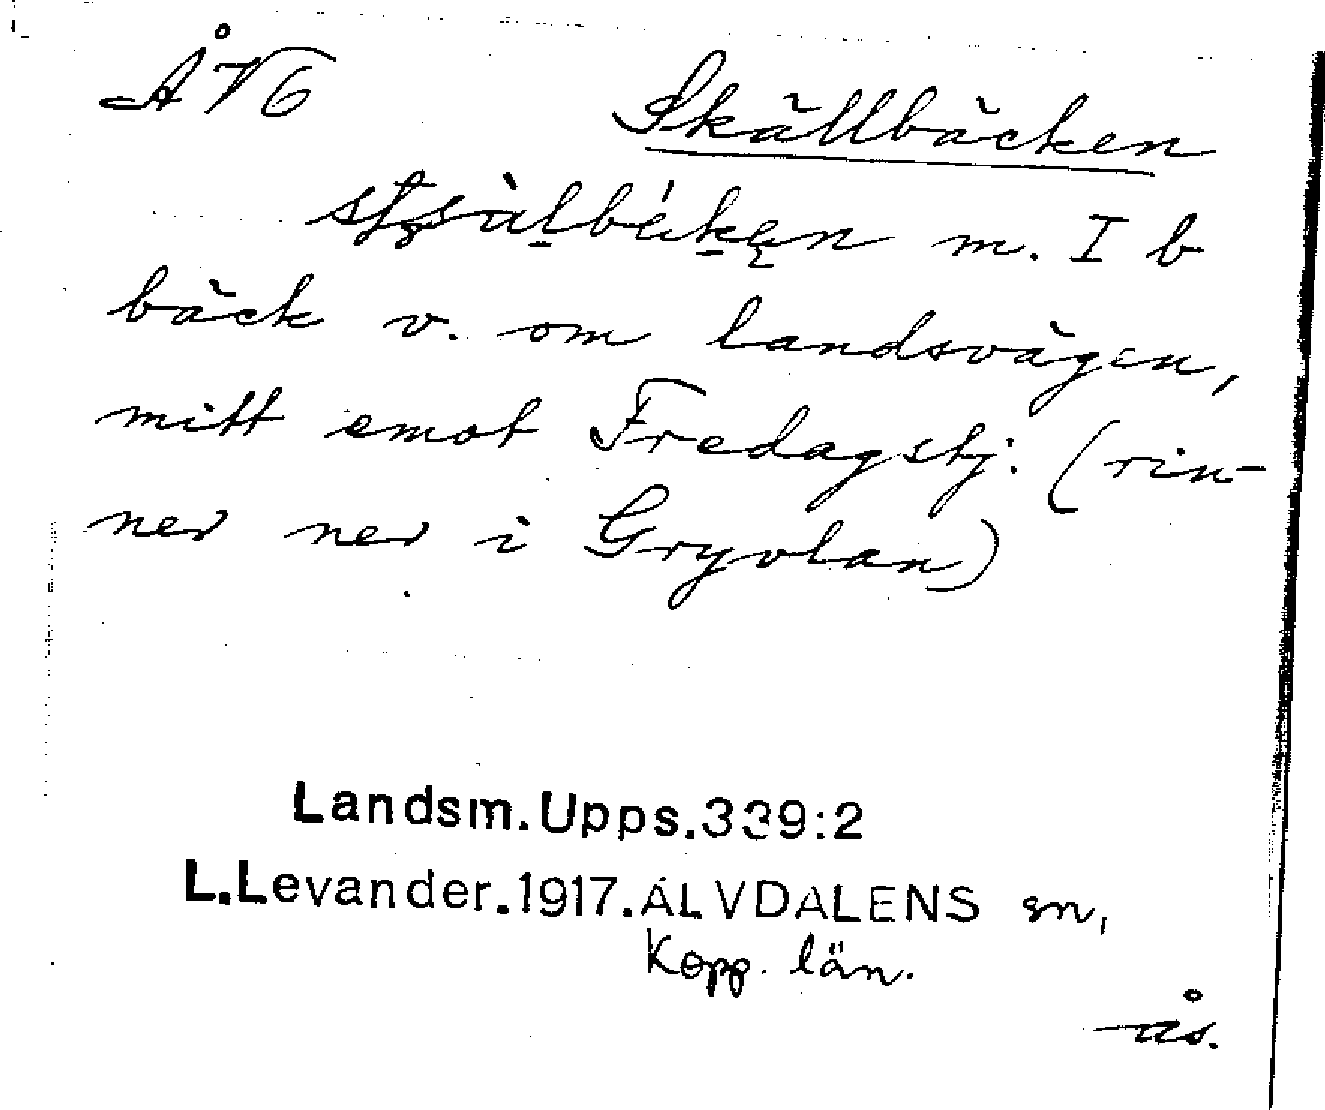 ÅV6
Skällbäcken
m. I b
bäck v. om landsvägen,
mitt emot Fredagstj. (rin-
ner ner i Gryvlan)
Landsm.Upps.339:2
L.Levander.1917.ÄLVDALENS sn,
Kopp. län.
ås.